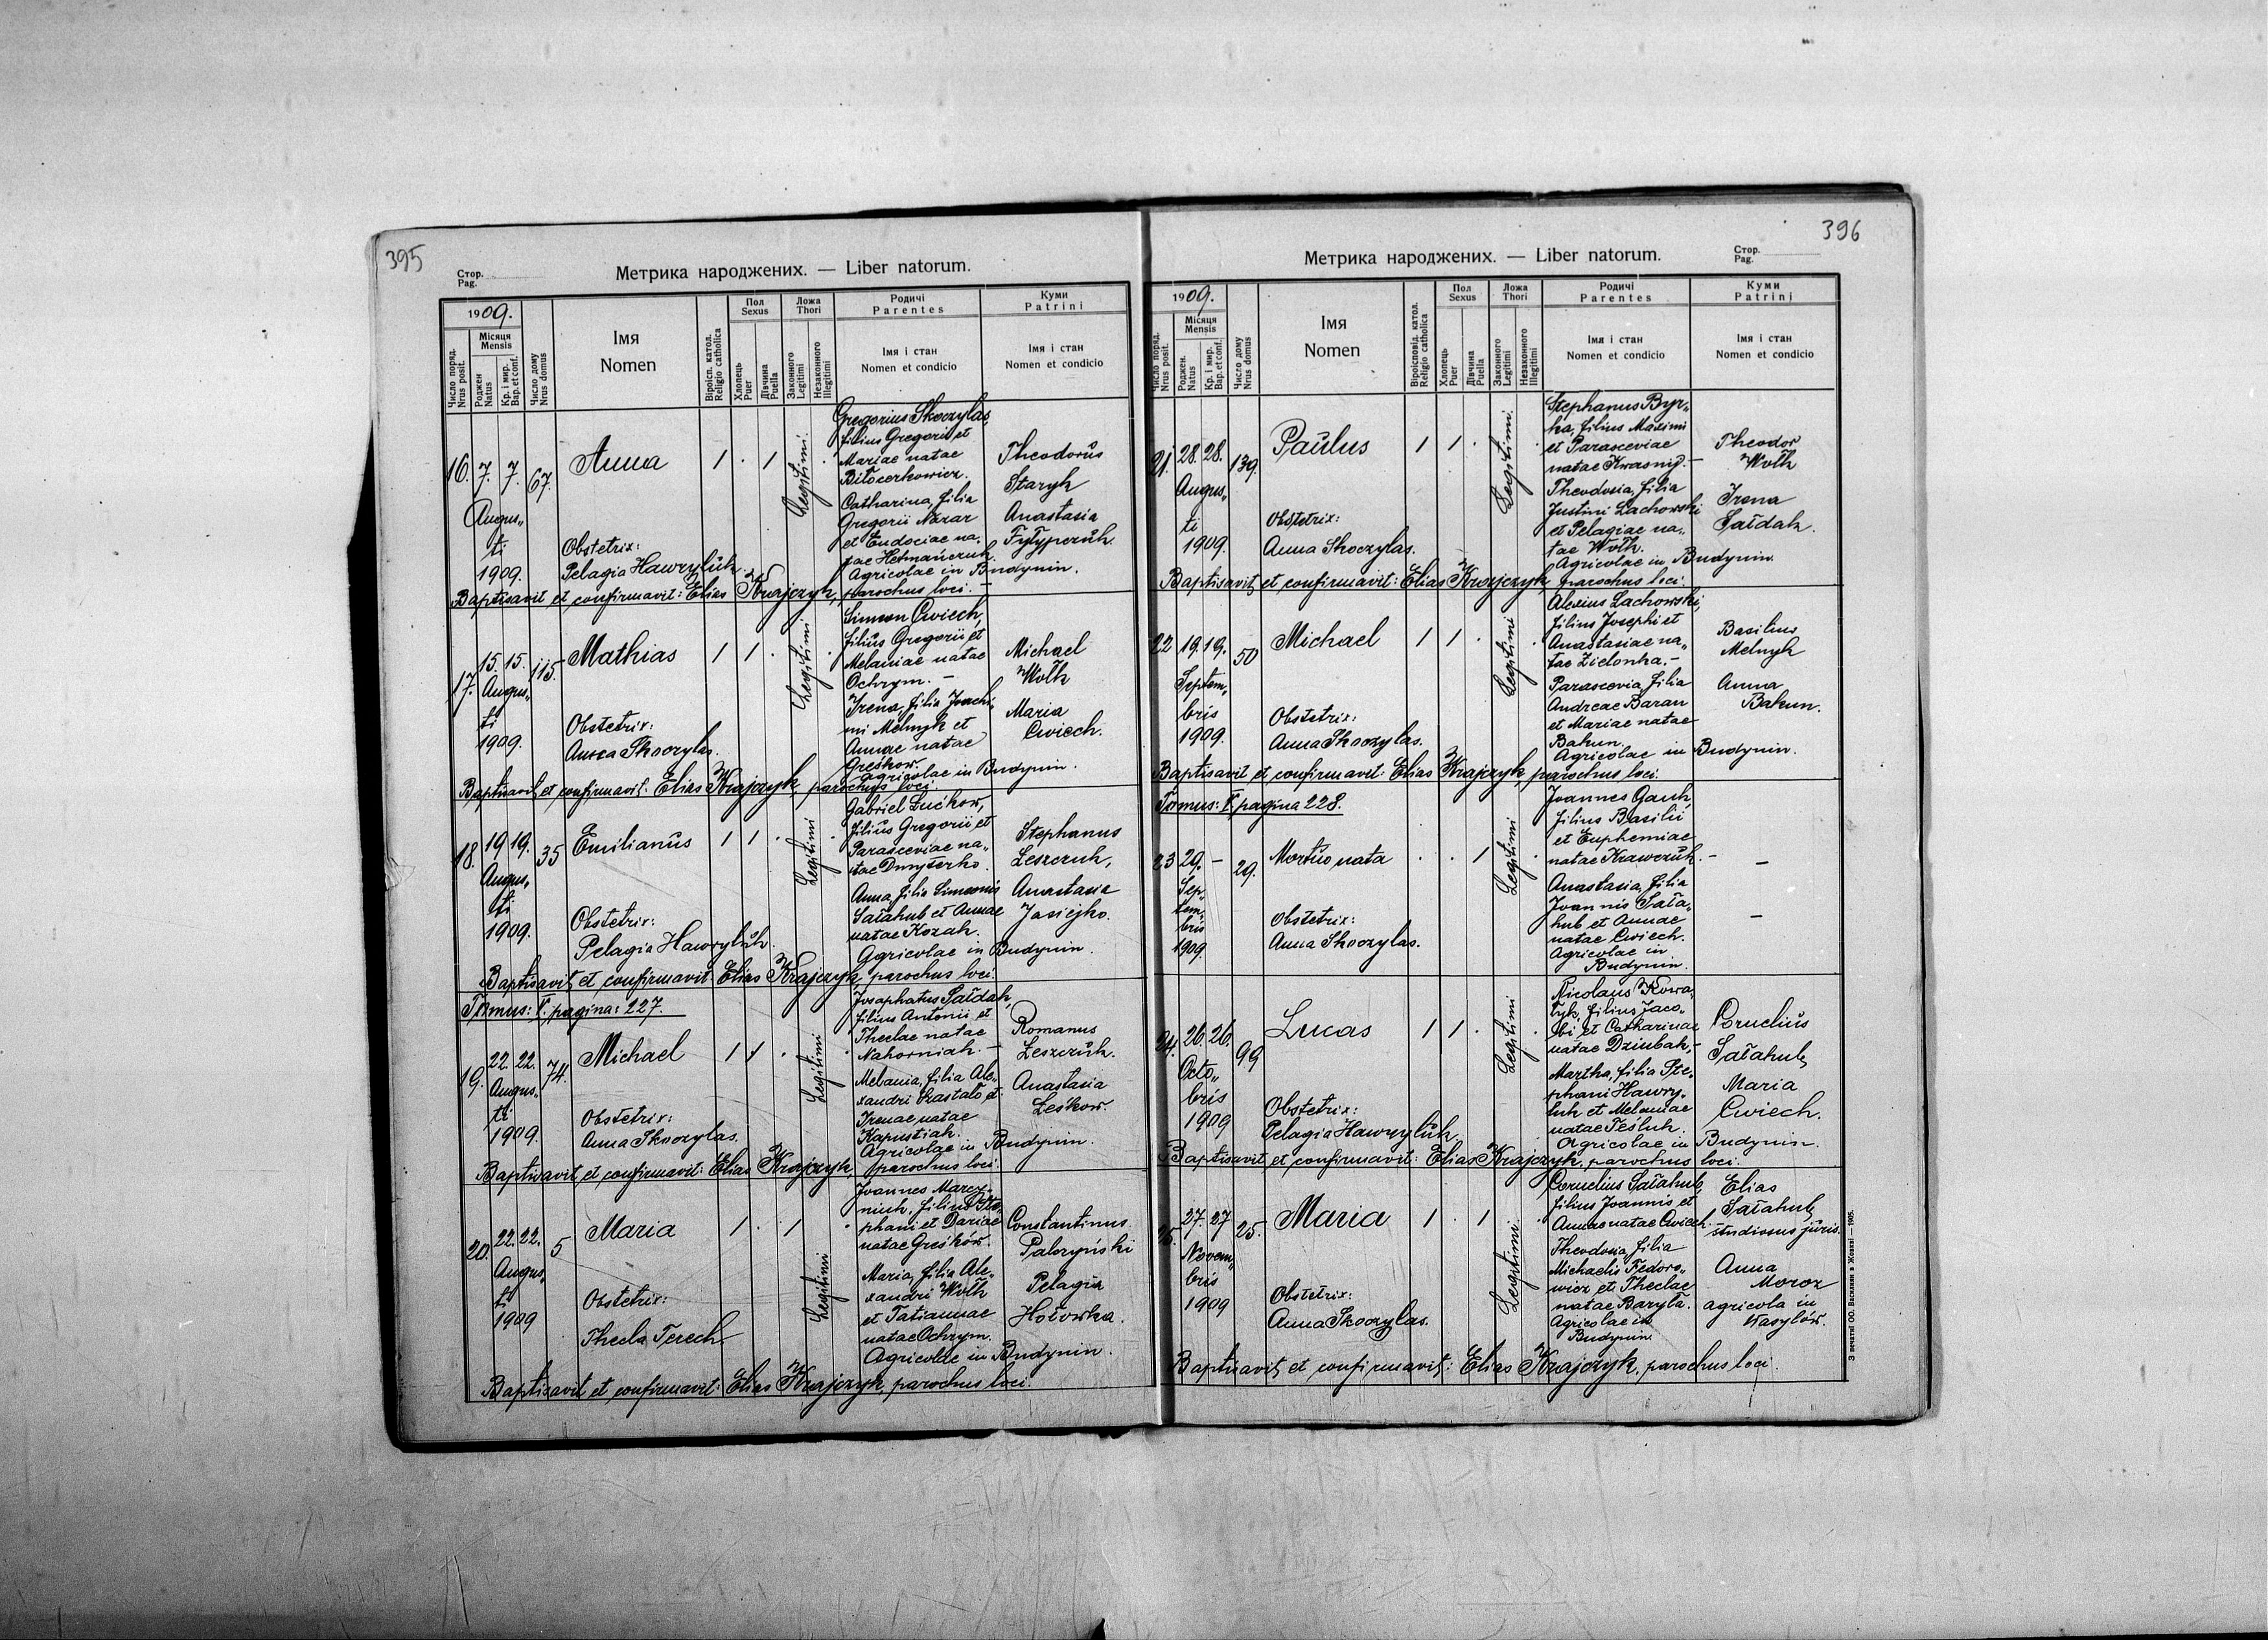 395
Стор.
Pag.
Метрика народжених. — Liber natorum.
1909.
Число поряд.
Nrus posit.
Місяця
Mensis
Роджен
Natus
Кр. і мир.
Bap. et conf.
Число дому
Nrus domus
Імя
Nomen
Віроісп. катол.
Religio catholica
Пол
Sexus
Хлопець
Puer
Дівчина
Puella
Ложа
Thori
Законного
Legitimi
Незаконного
Illegitimi
Родичі
Parentes
Імя і стан
Nomen et condicio
Куми
Patrini
Імя і стан
Nomen et condicio
16. 7. 7. 67.
Augus„
ti
1909.
Anna
1 . 1
Legitimi.
Obstetrix:
Pelagia Hawryluk.
Gregorius Skoczylas,
filius Gregorii et
Mariae natae
Biłocerkowicz.
Catharina, filia
Gregorii Nazar
et Eudociae na„
tae Hetmańczuk.
Agricolae in Budynin.
Theodorus
Staryk
Anastasia
Fyłypczuk.
Baptisavit et confirmavit: Elias Krajczyk, parochus loci.
17. 15. 15. 115.
Augus„
ti
1909.
Mathias
1 1 .
Legitimi
Obstetrix:
Anna Skoczylas.
Simeon Cwiech,
filius Gregorii et
Melaniae natae
Ochrym. —
Irena, filia Joachi„
mi Melnyk et
Annae natae
Greśkow.
Agricolae in Budynin.
Michael
Wołk
Maria
Cwiech.
Baptisavit et confirmavit: Elias Krajczyk, parochus loci.
18. 19 19. 35
Augus„
ti
1909.
Emilianus
1 1 .
Legitimi
Obstetrix:
Pelagia Hawryluk.
Gabriel Lućkow,
filius Gregorii et
Parasceviae na„
tae Dmyterko.
Anna, filia Simeonis
Sałahub et Annae
natae Kozak.
Agricolae in Budynin.
Stephanus
Leszczuk,
Anastasia
Jasiejko.
Baptisavit et confirmavit: Elias Krajczyk, parochus loci.
Tomus: V. pagina: 227.
19. 22. 22. 74.
Augus„
ti
1909.
Michael
1 1 .
Legitimi
Obstetrix:
Anna Skoczylas.
Josaphatus Sałdak,
filius Antonii et
Theclae natae
Nahorniak. —
Melania, filia Ale„
xandri Szastało et
Irenae natae
Kapustiak.
Agricolae in Budynin.
Romanus
Leszczuk.
Anastasia
Leśkow.
Baptisavit et confirmavit: Elias Krajczyk, parochus loci.
20. 22. 22. 5
Augus„
ti
1909
Maria
1 . 1
Legitimi
Obstetrix:
Thecla Terech.
Joannes Marcy„
niuk, filius Ste„
phani et Dariae
natae Greśków.
Maria, filia Ale„
xandri Wołk
et Tatiannae
natae Ochrym.
Agricolae in Budynin.
Constantinus
Pałczyński
Pelagia
Hołowka.
Baptisavit et confirmavit: Elias Krajczyk, parochus loci.
396
Стор.
Pag.
Метрика народжених. — Liber natorum.
1909.
Число поряд.
Nrus posit.
Місяця
Mensis
Роджен
Natus
Кр. і мир.
Bap. et conf.
Число дому
Nrus domus
Імя
Nomen
Віроісповід. катол.
Religio catholica
Пол
Sexus
Хлопець
Puer
Дівчина
Puella
Ложа
Thori
Законного
Legitimi
Незаконного
Illegitimi
Родичі
Parentes
Імя і стан
Nomen et condicio
Куми
Patrini
Імя і стан
Nomen et condicio
21. 28. 28. 139.
Augus„
ti
1909.
Paulus
1 1 .
Legitimi.
Obstetrix:
Anna Skoczylas.
Stephanus Byr„
ka, filius Maximi
et Parasceviae
natae Kwasnij. —
Theodosia, filia
Justini Lachowski
et Pelagiae na„
tae Wołk.
Agricolae in Budynin.
Theodor
Wołk
Irena
Sałdak.
Baptisavit et confirmavit: Elias Krajczyk, parochus loci.
22 19. 19. 50
Septem„
bris
1909.
Michael
1 1 .
Legitimi
Obstetrix:
Anna Skoczylas.
Alexius Lachowski,
filius Josephi et
Anastasiae na„
tae Zielonka. —
Parascevia, filia
Andreae Baran
et Mariae natae
Bakun.
Agricolae in Budynin.
Basilius
Melnyk
Anna
Bakun.
Baptisavit et confirmavit: Elias Krajczyk, parochus loci.
Tomus: V. pagina 228.
23 29. — 29.
Sep„
tem„
bris
1909.
Mortuo nata
. . 1
Legitimi
Obstetrix:
Anna Skoczylas.
Joannes Gauk,
filius Basilii
et Euphemiae
natae Krawczuk. —
Anastasia, filia
Joannis Sała„
hub et Annae
natae Cwiech.
Agricolae in
Budynin.
—
—
24. 26. 26. 99
Octo„
bris
1909
Lucas
1 1 .
Legitimi
Obstetrix:
Pelagia Hawryluk
Nicolaus Kowa„
łyk, filius Jaco„
bi et Catharinae
natae Dziubak, —
Martha, filia Ste„
phani Hawry„
luk et Melaniae
natae Teśluk.
Agricolae in Budynin.
Cornelius
Sałahub,
Maria
Cwiech.
Baptisavit et confirmavit: Elias Krajczyk, parochus loci.
25. 27. 27 25.
Novem„
bris
1909
Maria
1 . 1
Legitimi.
Obstetrix:
Anna Skoczylas.
Cornelius Sałahub,
filius Joannis et
Annae natae Cwiech.
Theodosia, filia
Michaelis Fedoro„
wicz et Theclae
natae Baryła.
Agricolae in
Budynin.
Elias
Sałahub,
studiosus juris.
Anna
Moroz
agricola in
Wasylów.
Baptisavit et confirmavit: Elias Krajczyk, parochus loci.
З печатні ОО. Василиян в Жовкві — 1905.